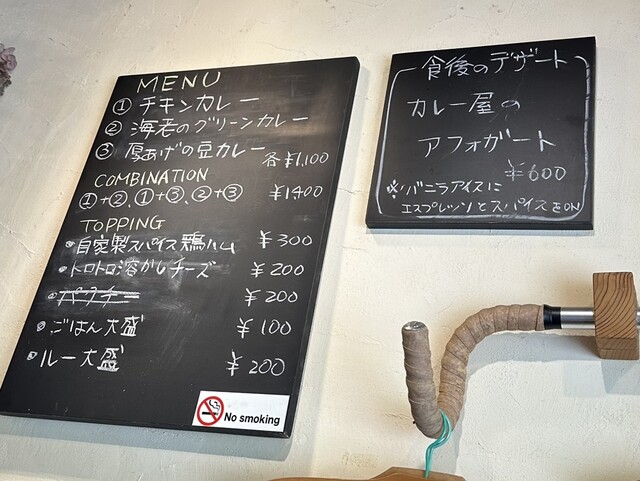 MENU
① チキンカレー
② 海老のグリーンカレー
③ 厚あげの豆カレー
各¥1,100
COMBINATION
①+②, ①+③, ②+③ ¥1400
TOPPING
・自家製スパイス鶏ハム ¥300
・トロトロ溶かしチーズ ¥200
・パクチー ¥200
・ごはん大盛 ¥100
・ルー大盛 ¥200
No smoking
食後のデザート
カレー屋の
アフォガート
¥600
※バニラアイスに
エスプレッソとスパイスをON